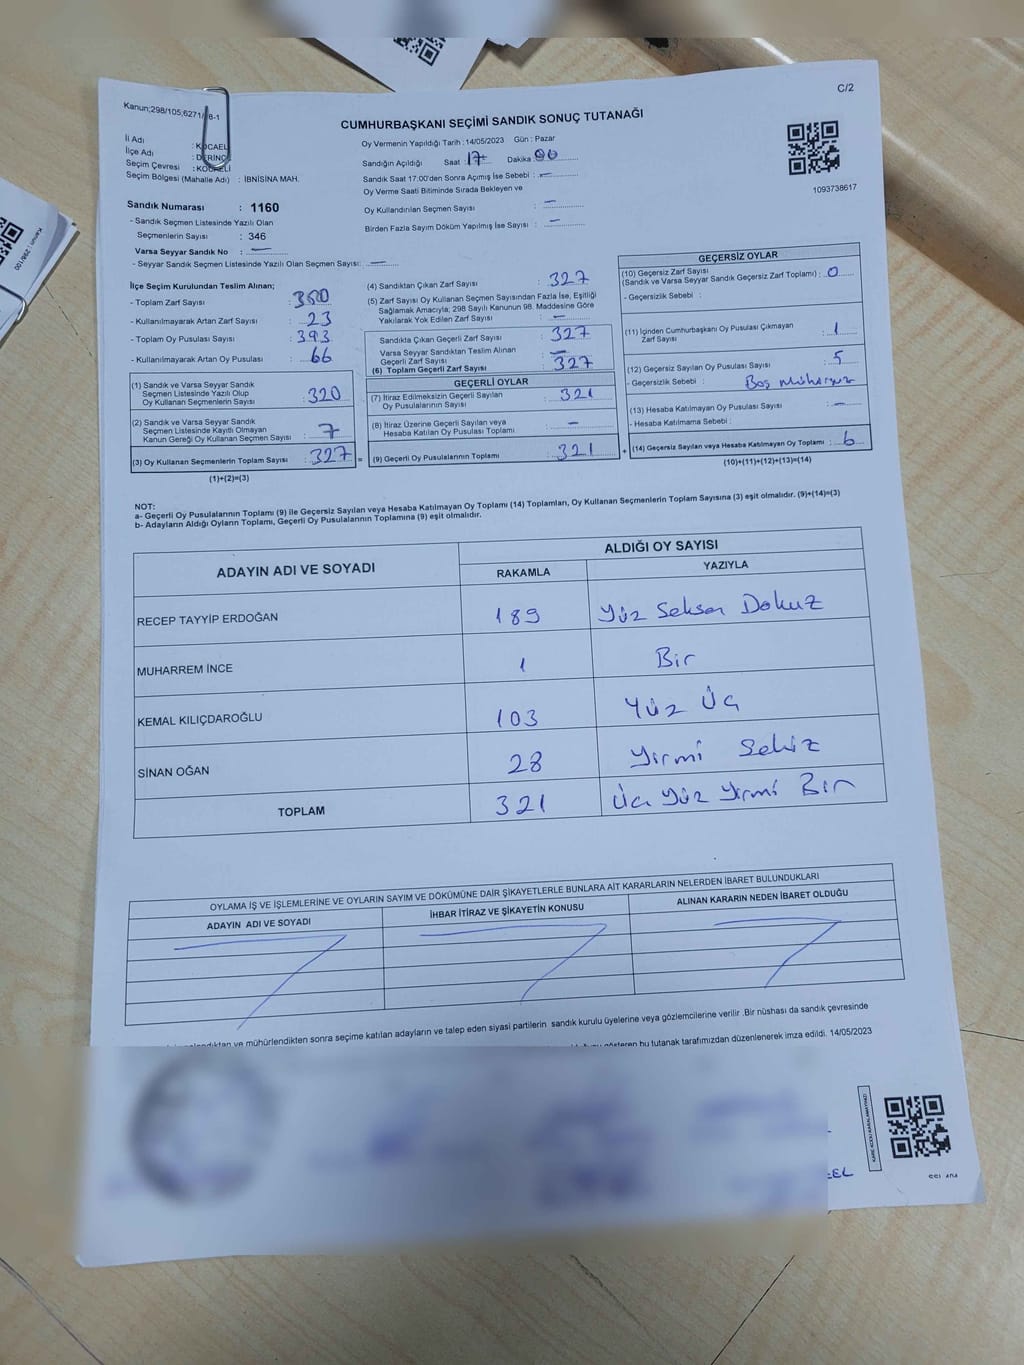 C/2
Kanun;298/105,6271/ 8-1
CUMHURBAŞKANI SEÇİMİ SANDIK SONUÇ TUTANAĞI
İl Adı : KOCAELİ
İlçe Adı : DERİNCE
Seçim Çevresi : KOCAELİ
Seçim Bölgesi (Mahalle Adı) : İBNİSİNA MAH.
Oy Vermenin Yapıldığı Tarih :14/05/2023 Gün : Pazar
Sandığın Açıldığı Saat 17 Dakika 00
Sandık Saat 17:00'den Sonra Açımış İse Sebebi : —
Oy Verme Saati Bitiminde Sırada Bekleyen ve
Oy Kullandırılan Seçmen Sayısı : —
Birden Fazla Sayım Döküm Yapılmış İse Sayısı : —
1093738617
Sandık Numarası : 1160
- Sandık Seçmen Listesinde Yazılı Olan
Seçmenlerin Sayısı : 346
Varsa Seyyar Sandık No : —
- Seyyar Sandık Seçmen Listesinde Yazılı Olan Seçmen Sayısı: —
İlçe Seçim Kurulundan Teslim Alınan;
- Toplam Zarf Sayısı : 350
- Kullanılmayarak Artan Zarf Sayısı : 23
- Toplam Oy Pusulası Sayısı : 393
- Kullanılmayarak Artan Oy Pusulası : 66
(1) Sandık ve Varsa Seyyar Sandık
Seçmen Listesinde Yazılı Olup
Oy Kullanan Seçmenlerin Sayısı : 320
(2) Sandık ve Varsa Seyyar Sandık
Seçmen Listesinde Kayıtlı Olmayan
Kanun Gereği Oy Kullanan Seçmen Sayısı : 7
(3) Oy Kullanan Seçmenlerin Toplam Sayısı : 327 =
(1)+(2)=(3)
(4) Sandıktan Çıkan Zarf Sayısı : 327
(5) Zarf Sayısı Oy Kullanan Seçmen Sayısından Fazla İse, Eşitliği
Sağlamak Amacıyla; 298 Sayılı Kanunun 98. Maddesine Göre
Yakılarak Yok Edilen Zarf Sayısı : —
Sandıkta Çıkan Geçerli Zarf Sayısı : 327
Varsa Seyyar Sandıktan Teslim Alınan
Geçerli Zarf Sayısı : —
(6) Toplam Geçerli Zarf Sayısı : 327
GEÇERLİ OYLAR
(7) İtiraz Edilmeksizin Geçerli Sayılan
Oy Pusulalarının Sayısı : 321
(8) İtiraz Üzerine Geçerli Sayılan veya
Hesaba Katılan Oy Pusulası Toplamı : —
(9) Geçerli Oy Pusulalarının Toplamı : 321 +
GEÇERSİZ OYLAR
(10) Geçersiz Zarf Sayısı
(Sandık ve Varsa Seyyar Sandık Geçersiz Zarf Toplamı) : 0
- Geçersizlik Sebebi :
(11) İçinden Cumhurbaşkanı Oy Pusulası Çıkmayan
Zarf Sayısı : 1
(12) Geçersiz Sayılan Oy Pusulası Sayısı : 5
- Geçersizlik Sebebi : Boş Mühürsüz
(13) Hesaba Katılmayan Oy Pusulası Sayısı : —
- Hesaba Katılmama Sebebi :
(14) Geçersiz Sayılan veya Hesaba Katılmayan Oy Toplamı : 6
(10)+(11)+(12)+(13)=(14)
NOT:
a- Geçerli Oy Pusulalarının Toplamı (9) ile Geçersiz Sayılan veya Hesaba Katılmayan Oy Toplamı (14) Toplamları, Oy Kullanan Seçmenlerin Toplam Sayısına (3) eşit olmalıdır. (9)+(14)=(3)
b- Adayların Aldığı Oyların Toplamı, Geçerli Oy Pusulalarının Toplamına (9) eşit olmalıdır.
ADAYIN ADI VE SOYADI
ALDIĞI OY SAYISI
RAKAMLA YAZIYLA
RECEP TAYYİP ERDOĞAN 189 Yüz Seksen Dokuz
MUHARREM İNCE 1 Bir
KEMAL KILIÇDAROĞLU 103 Yüz Üç
SİNAN OĞAN 28 Yirmi Sekiz
TOPLAM 321 Üç Yüz Yirmi Bir
OYLAMA İŞ VE İŞLEMLERİNE VE OYLARIN SAYIM VE DÖKÜMÜNE DAİR ŞİKAYETLERLE BUNLARA AİT KARARLARIN NELERDEN İBARET BULUNDUKLARI
ADAYIN ADI VE SOYADI İHBAR İTİRAZ VE ŞİKAYETİN KONUSU ALINAN KARARIN NEDEN İBARET OLDUĞU
ve mühürlendikten sonra seçime katılan adayların ve talep eden siyasi partilerin sandık kurulu üyelerine veya gözlemcilerine verilir .Bir nüshası da sandık çevresinde
gösteren bu tutanak tarafımızdan düzenlenerek imza edildi. 14/05/2023